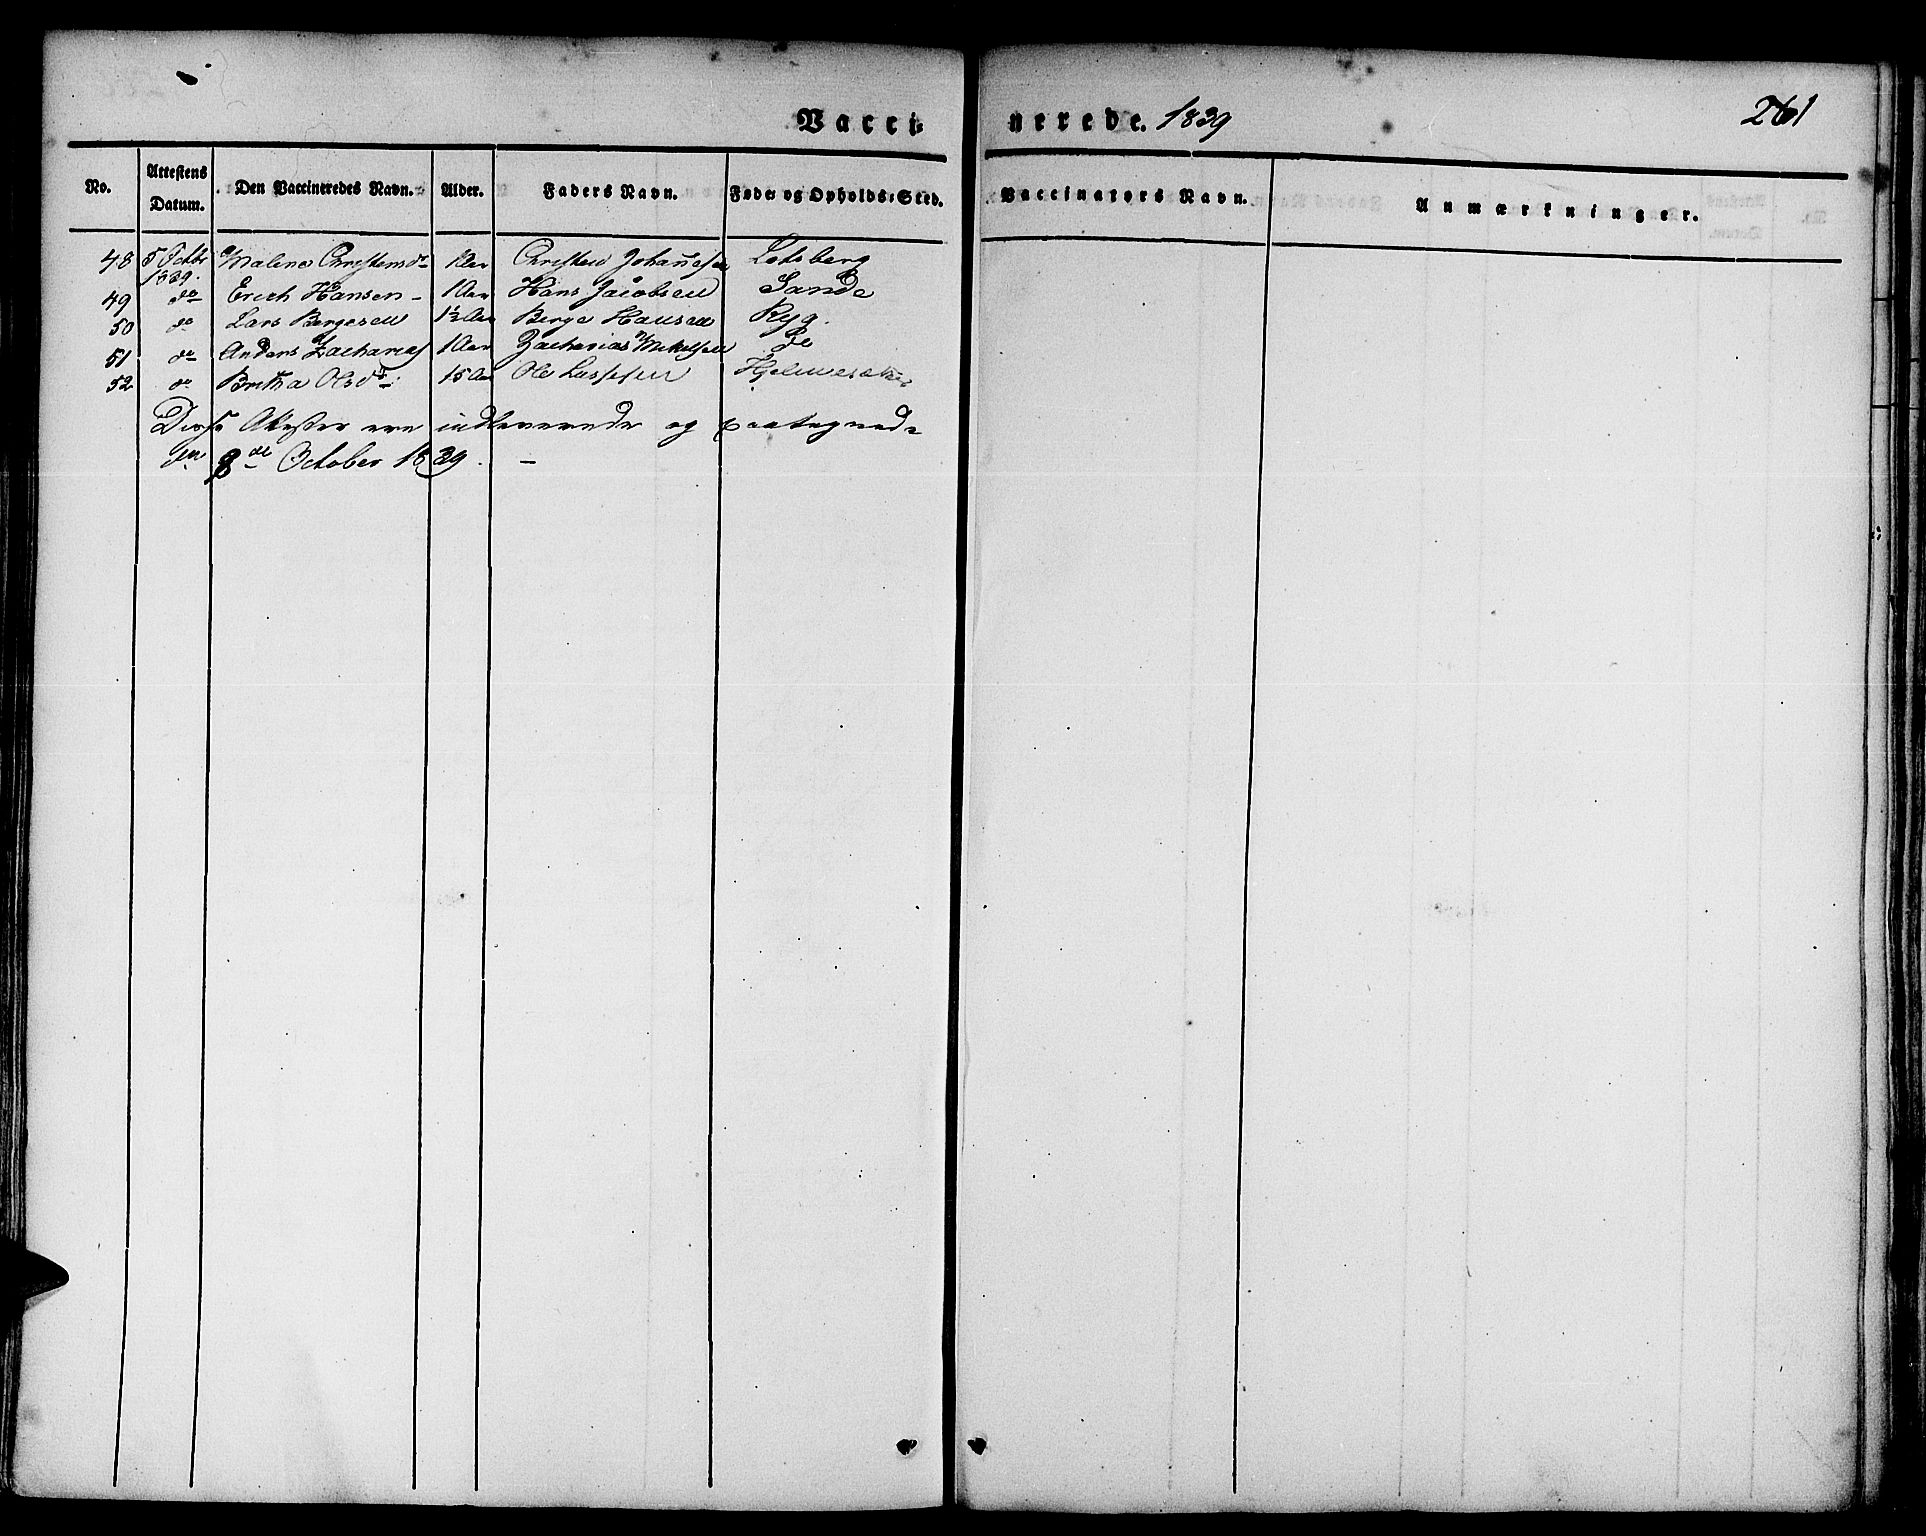 Vaccinerede. 1839
261
No. Attestens Datum. Den Vaccineredes Navn. Alder. Faders Navn. Føde- og Opholds-Sted. Vaccinators Navn. Anmærkninger.
48 5 Octbr 1839. Malene Christensdr 1 Aar Christen Johannesen Lotsberg
49 do Erich Hansen 1 Aar Hans Jacobsen Sande
50 do Lars Bergesen 1½ Aar Berge Hansen Ryg.
51 do Anders Zacharias 1 Aar Zacharias Mikelsen do
52 do Britha Olsdr 15 Aar Ole
Disse Attester ere indleverede og paategnede
den 8de October 1839. –